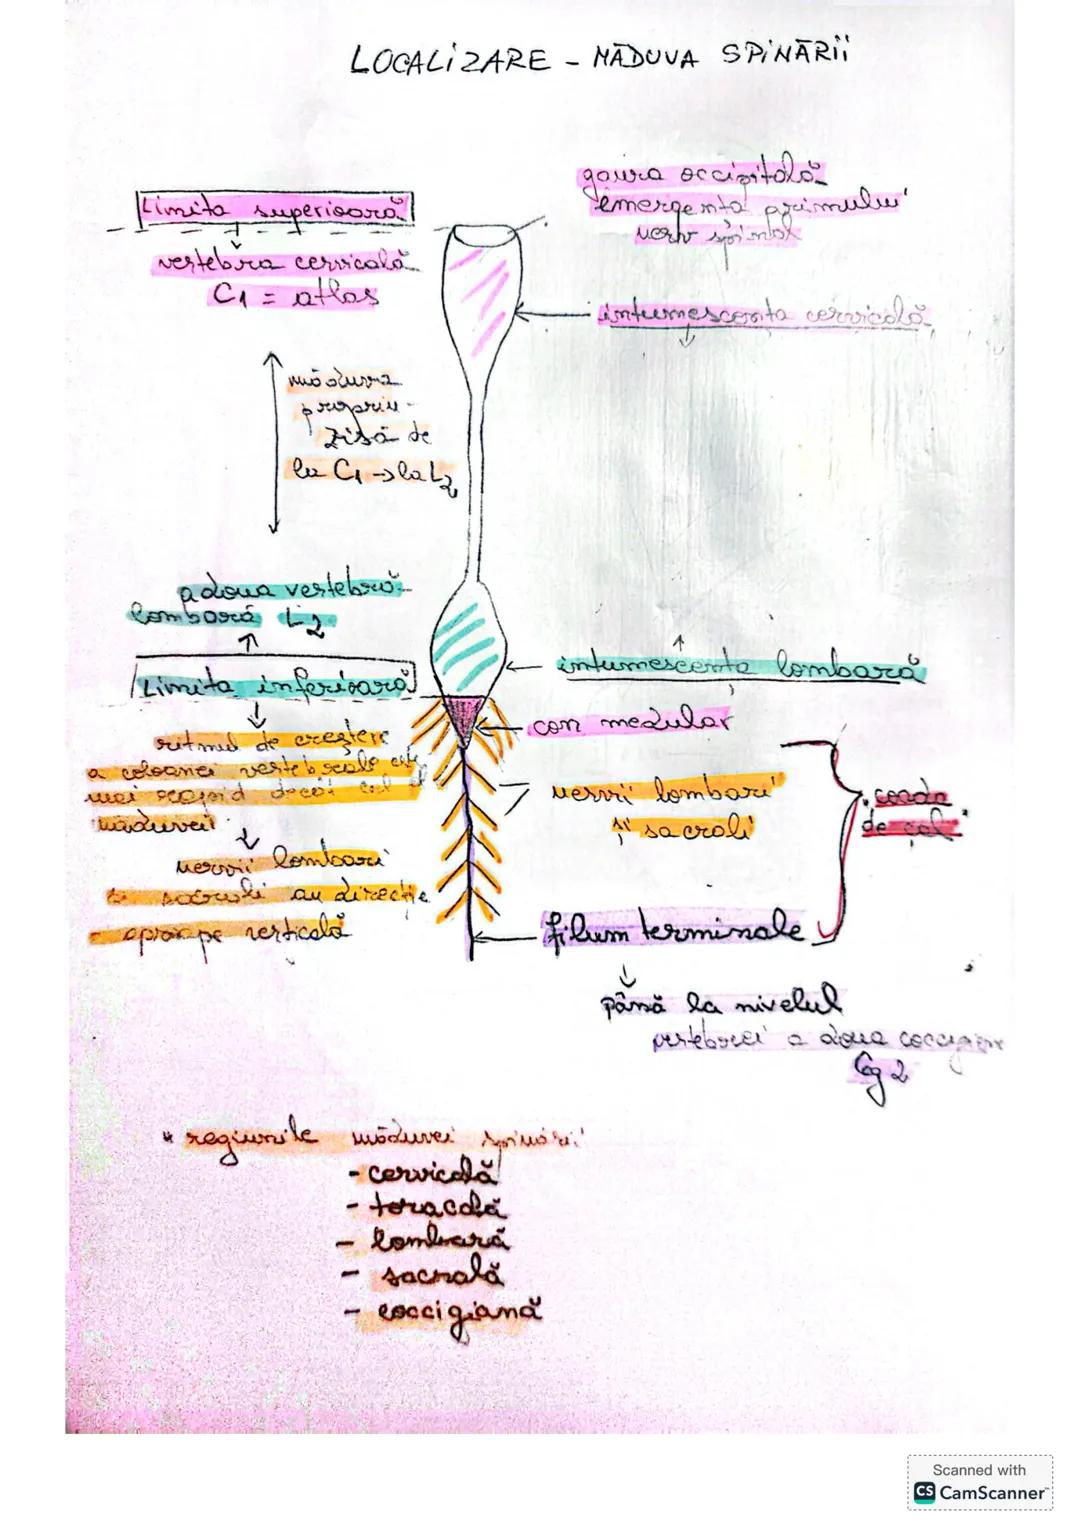 LOCALIZARE - MĂDUVA SPINĂRII
Limita superioară
vertebra cervicală
C1 = atlas
gaura occipitală
emergența primului
nerv spinal
intumescența cervicală
măduva
propriu-
zisă de
la C1 → la L2
a doua vertebră
lombară L2
Limita inferioară
ritmul de creștere
a coloanei vertebrale este
mai rapid decât cel al
măduvei
nervii lombari
și sacrali au direcție
aproape verticală
intumescența lombară
con medular
nervi lombari
și sacrali
"coada
de cal"
filum terminale
până la nivelul
vertebrei a doua coccigiene
Cg 2
* regiunile măduvei spinării:
- cervicală
- toracală
- lombară
- sacrală
- coccigiană
Scanned with
CS CamScanner